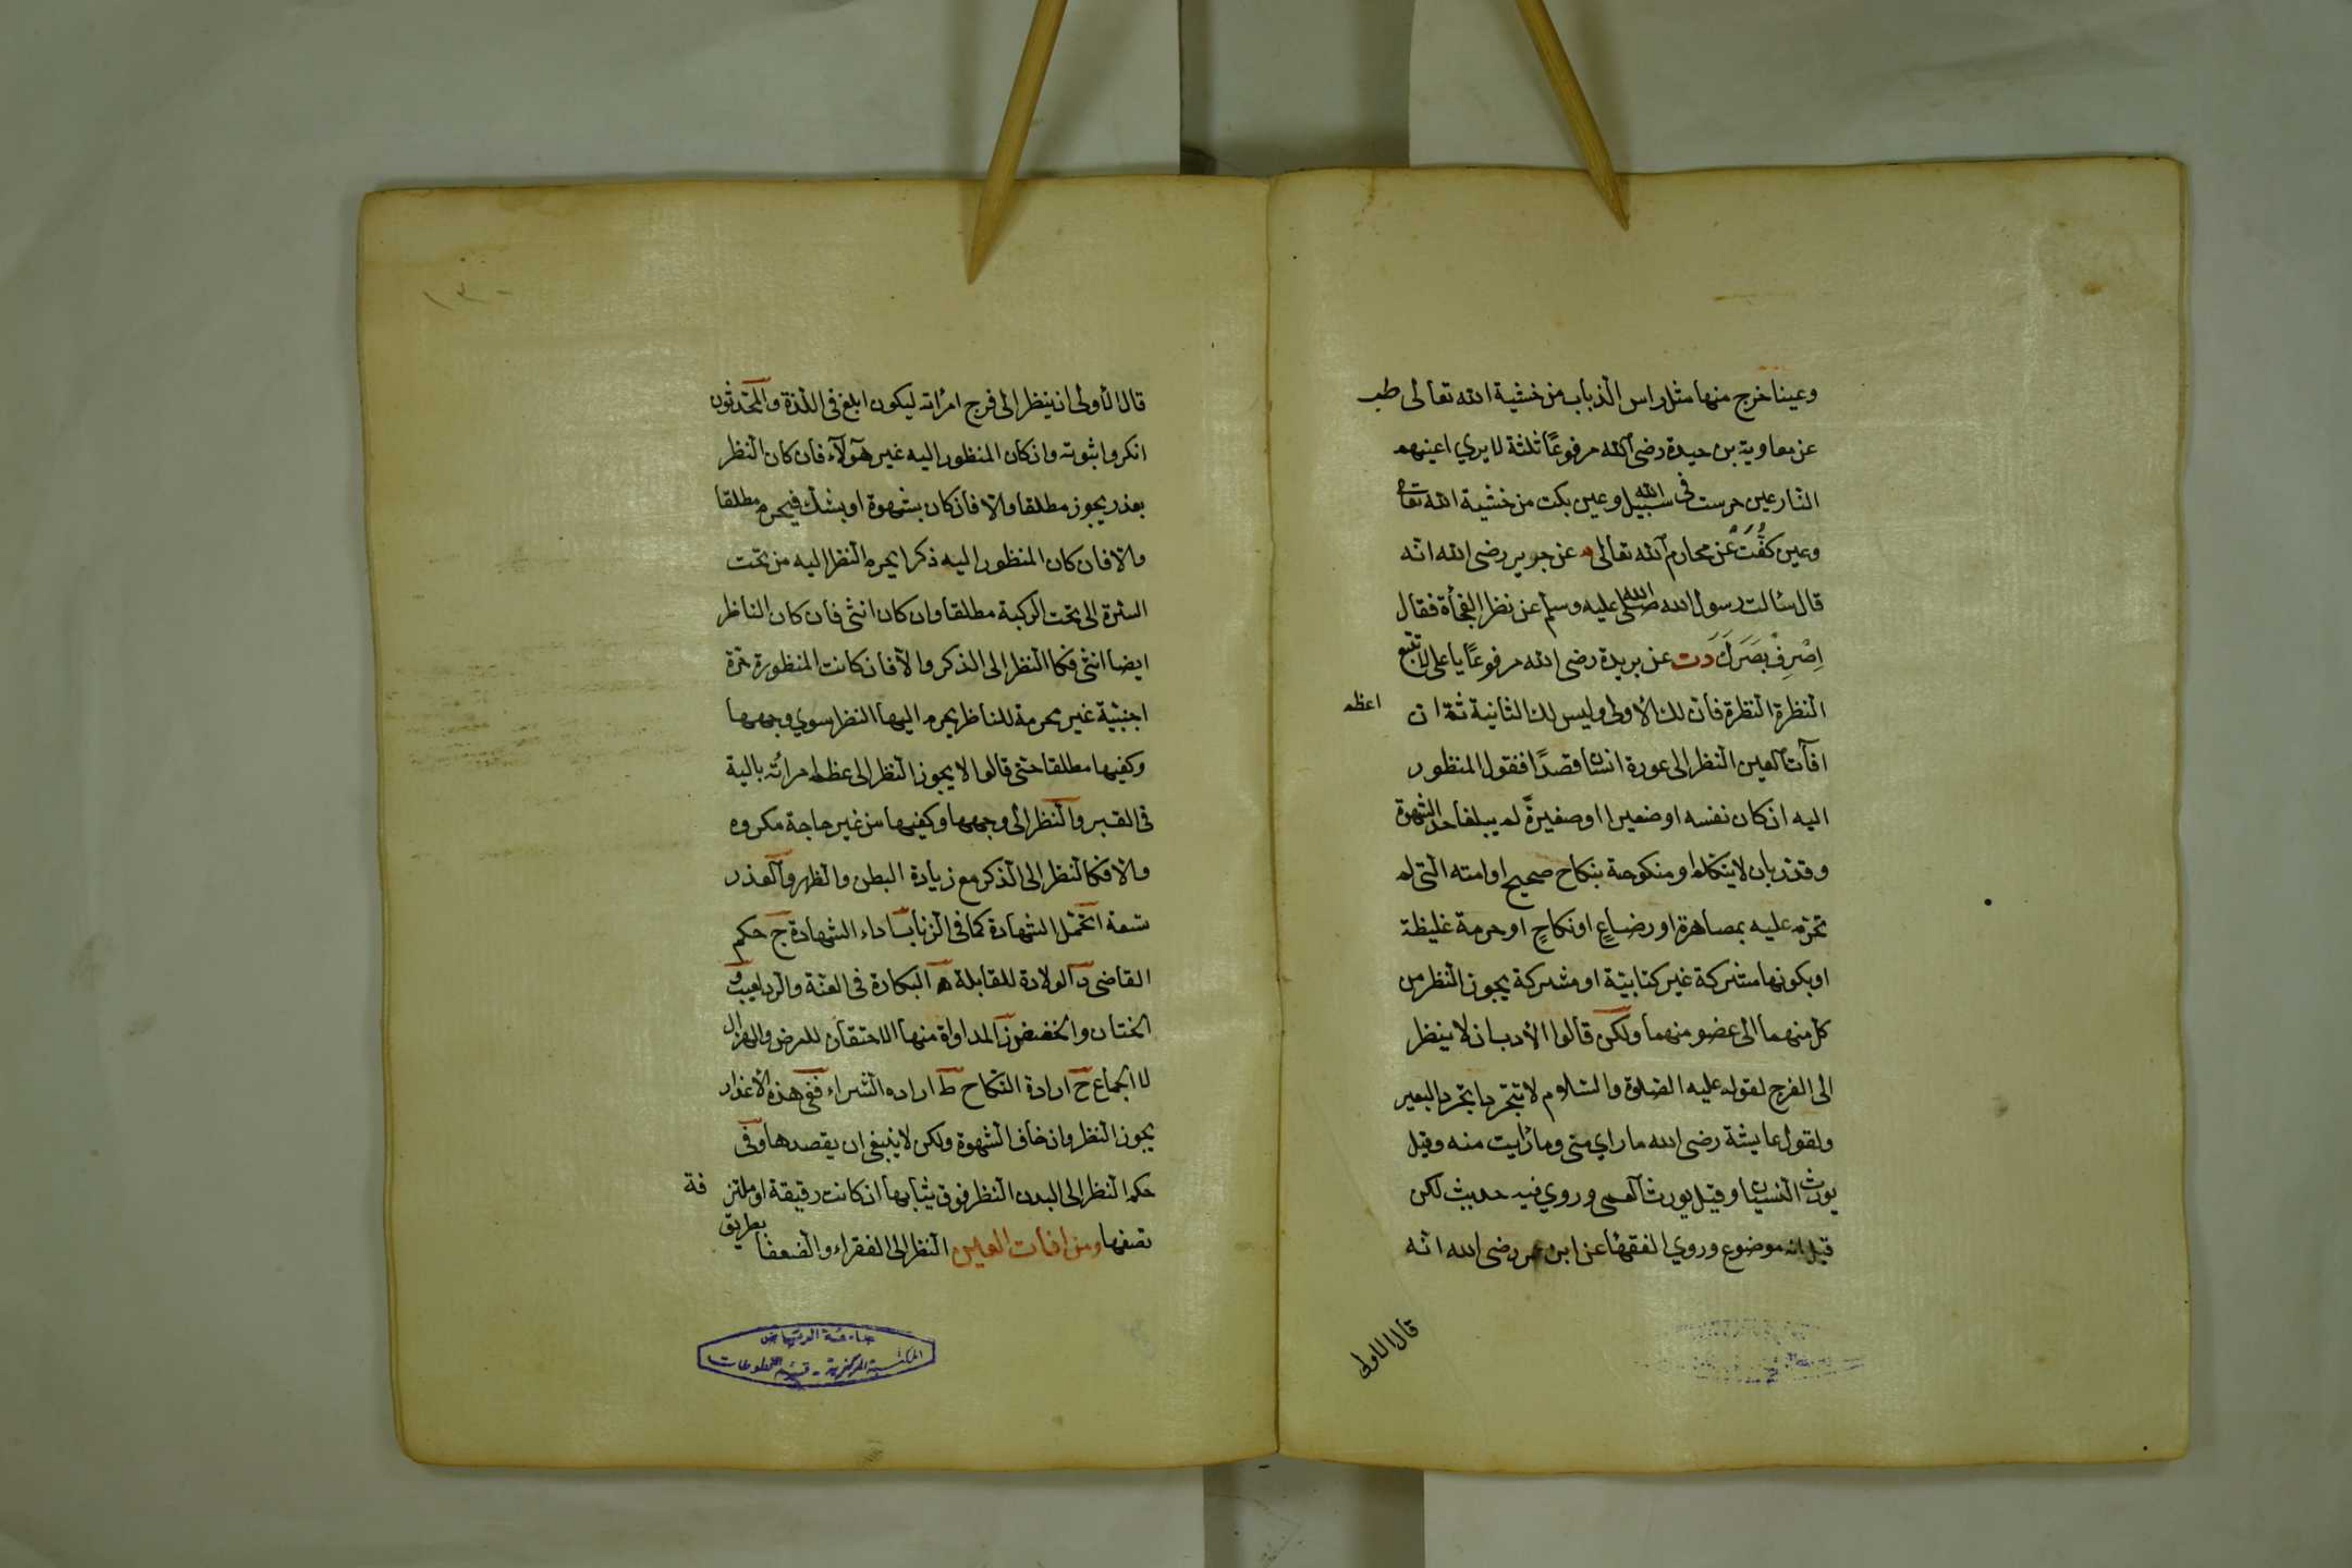 وعينا خرج منها مثل راس الذباب من خشية الله تعالى طب
عن معاوية بن حيدة رضي الله مرفوعًا ثلثة لا يري اعينهم
النار عين حرست في سبيل الله وعين بكت من خشية الله تعا
وعين كفّت عن محارم الله تعالى م عن جرير رضى الله انه
قال سالت رسول الله صلى الله عليه وسلم عن نظر الفجأة فقال
اِصْرِفْ بَصَرَكَ دت عن بريدة رضى الله مرفوعًا يا على لا تتبع
النظرة النظرة فان لك الأولى وليس لك الثانية ثم ان اعظم
افآت العين النظر الى عورة انسان قصدًا فنقول المنظور
اليه ان كان نفسه او صغيرا او صغيرةً لم يبلغا حد الشهوة
وقدّر بان لا يتكلم او منكوحة بنكاح صحيح او امته التى لم
تحرم عليه بمصاهرة او رضاعٍ او نكاحٍ او حرمة غليظة
او بكونها مشركة غير كتابيّة او مشتركة يجوز النظر من
كل منهما الى عضو منهما ولكن قالوا الأدب ان لا ينظر
الى الفرج لقوله عليه الصلوة والسلام لا تتجردا تجرد البعير
ولقول عايشة رضى الله ما راي منى وما رأيت منه وقيل
يورث النسيان وقيل يورث العمى وروي فيه حديث لكن
قيل انه موضوع وروي الفقهاء عن ابن عمر رضى الله انه
قال الاولى
١٣٠
قال الأولى ان ينظر الى فرج امرأته ليكون ابلغ فى اللذة والمحدثون
انكروا ثبوته وان كان المنظور اليه غير هؤلآء فان كان النظر
بعذر يجوز مطلقا والا فان كان بشهوة او بشك فيحرم مطلقا
والا فان كان المنظور اليه ذكرا يحرم النظر اليه من تحت
السرة الى تحت الركبة مطلقا وان كان انثى فان كان الناظر
ايضا انثى فكا النظر الى الذكر والا فان كانت المنظورة حرة
اجنبية غير محرمة للناظر يحرم اليها النظر سوي وجهها
وكفيها مطلقا حتى قالوا لا يجوز النظر الى عظم امرأته بالية
فى القبر والنظر الى وجهها وكفيها من غير حاجة مكروه
والا فكالنظر الى الذكر مع زيادة البطن والظهر والعذر
تسعة ا تحمل الشهادة كما فى الزنا ب اداء الشهادة ج حكم
القاضى د الولادة للقابلة ه البكارة فى العنة والرد بعيب و
الختان والخفض ز المداواة منها الاحتقان للمرض والهزال
لا الجماع ح ارادة النكاح ط اراده الشراء ففى هذه الأعذار
يجوز النظر وان خاف الشهوة ولكن لا ينبغى ان يقصدها وفى
حكم النظر الى البدن النظر فوق ثيابها ان كانت رقيقة او ملتزقة
تصفها ومن افات العين النظر الى الفقراء والضعفا بطريق
جامعة الرياض
المكتبة المركزية - قسم المخطوطات